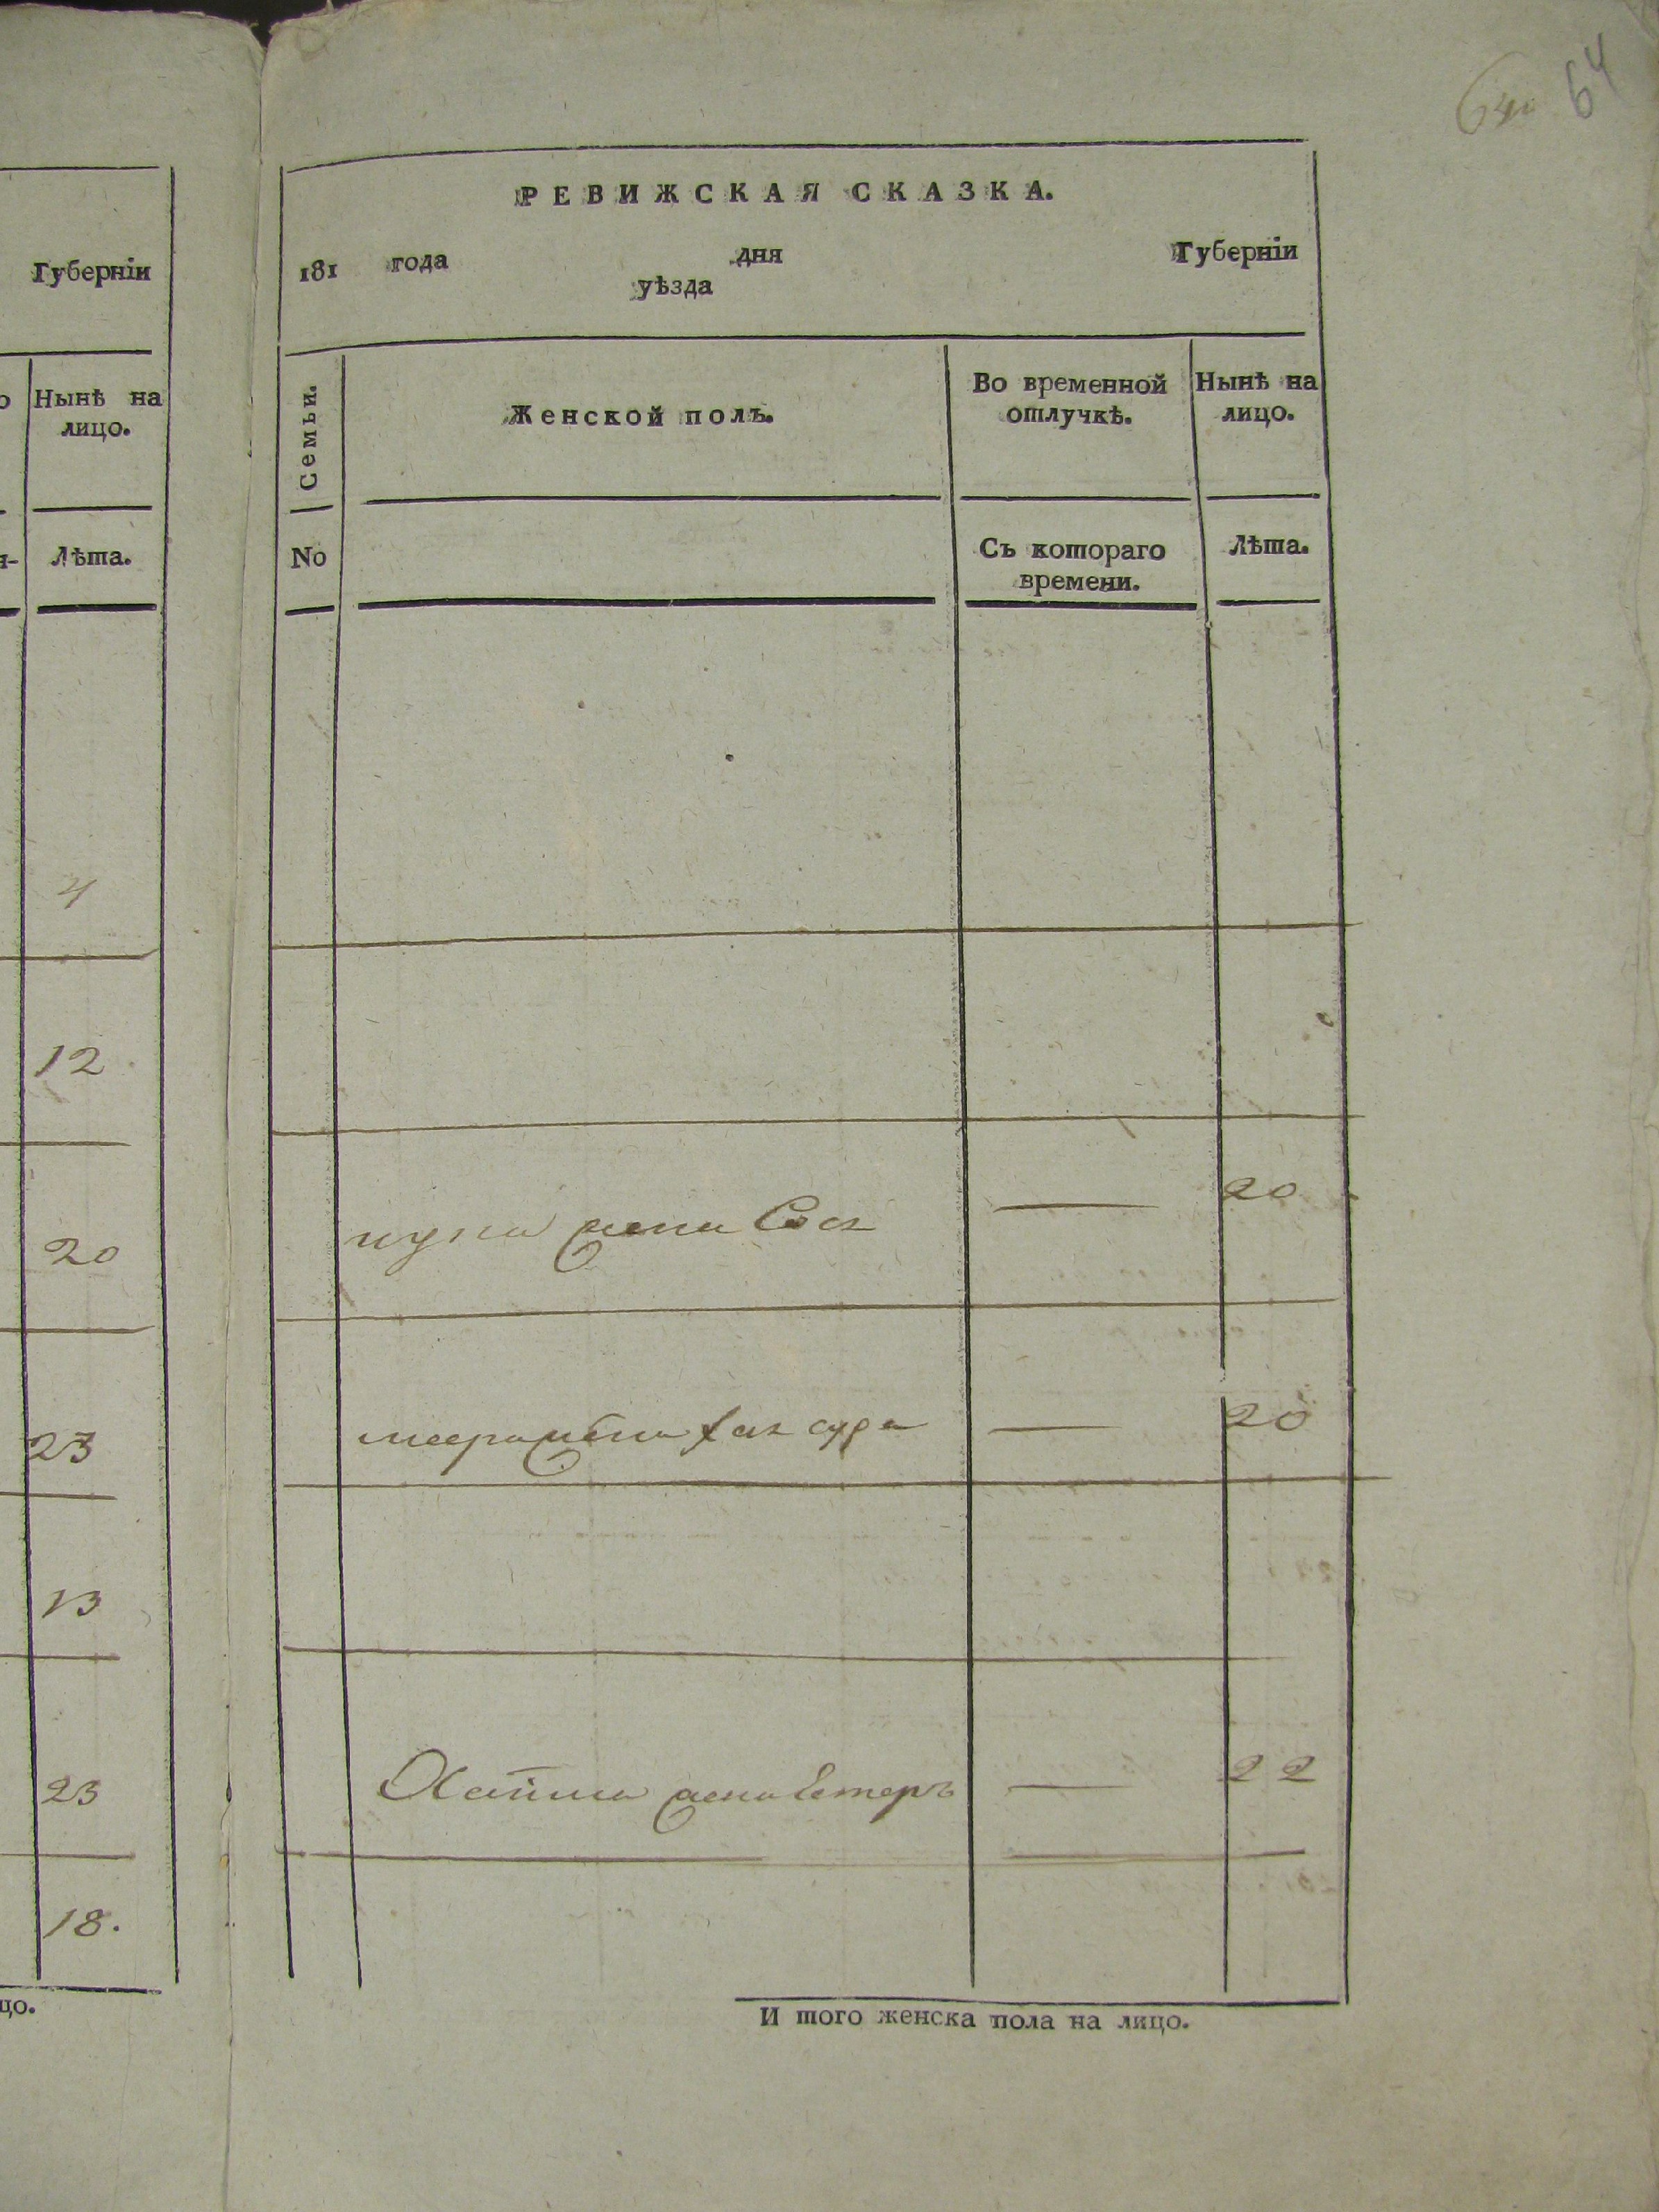 Губерніи
Нынѣ на
лицо.
Лѣта.
4
12
20
23
13
23
18.
цо.
64
РЕВИЖСКАЯ СКАЗКА.
181 года дня Губерніи
уѣзда
Семьи.
Женской полъ.
Во временной
отлучкѣ.
Нынѣ на
лицо.
No
Съ котораго
времени.
Лѣта.
жена 20
20
жена Естеръ 22
И того женска пола на лицо.